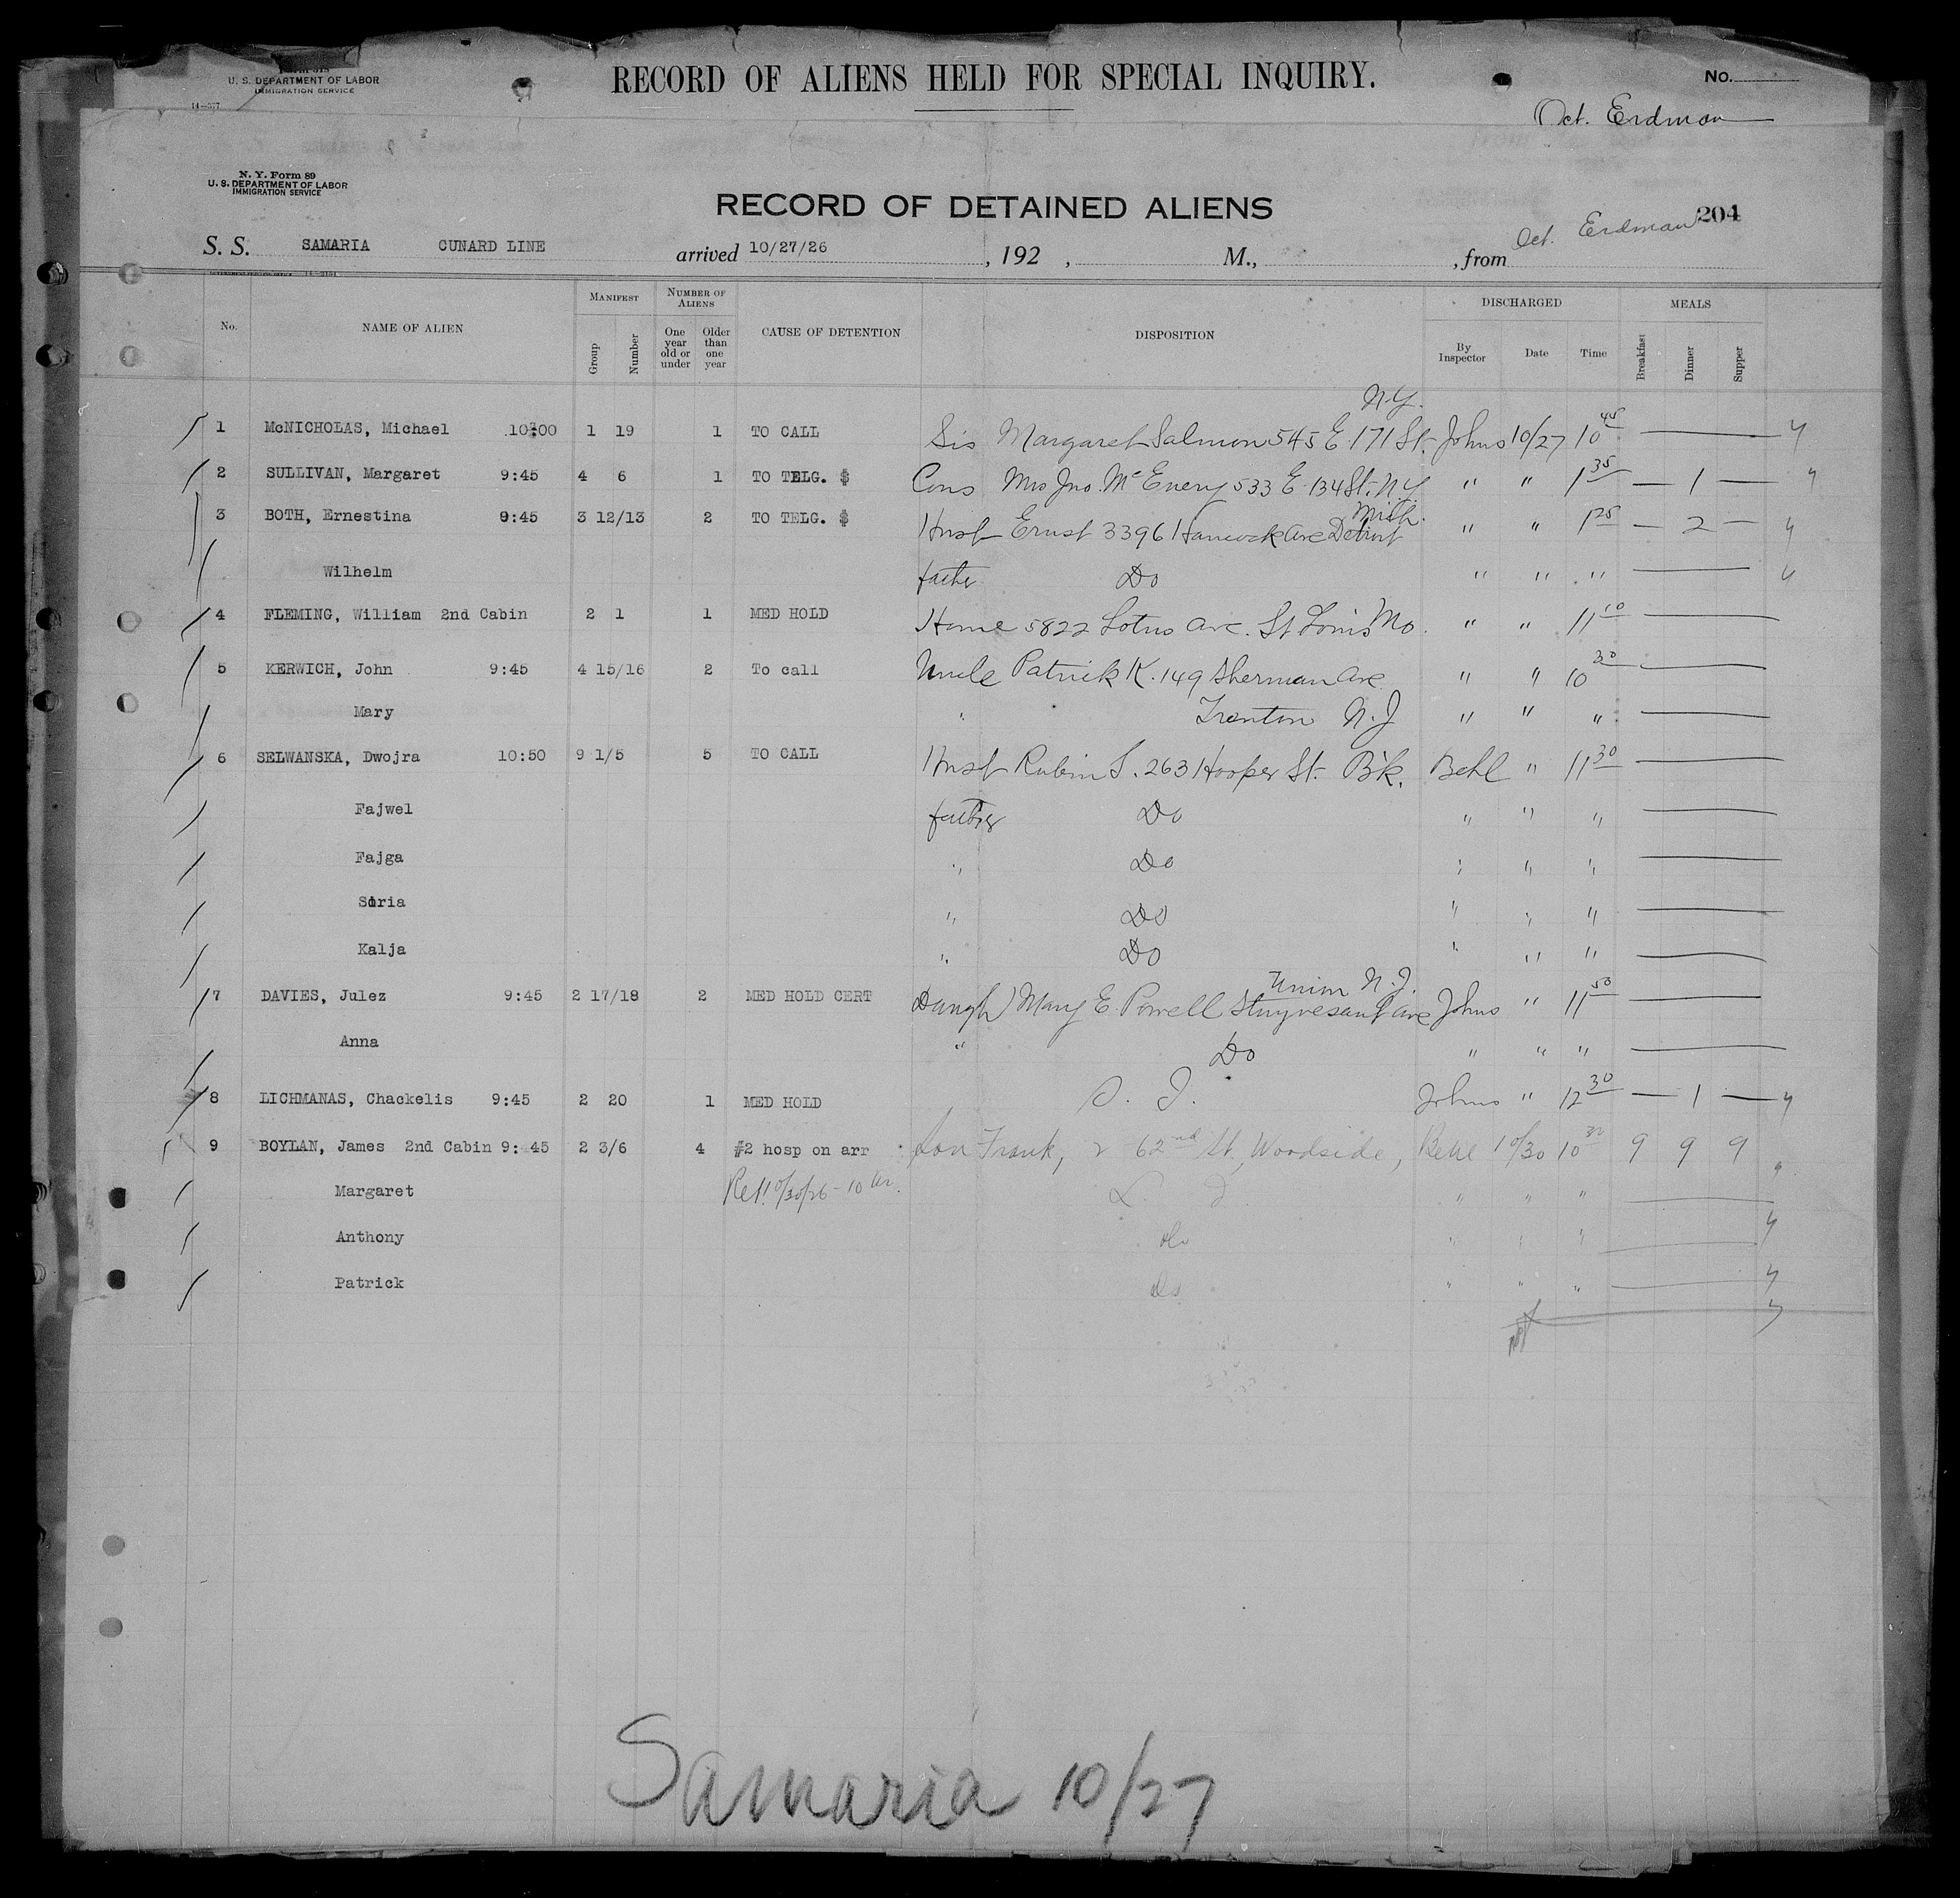 U. S. DEPARTMENT OF LABOR
IMMIGRATION SERVICE
14—377
RECORD OF ALIENS HELD FOR SPECIAL INQUIRY.
No.
Oct. Erdman
N. Y. Form 89
U. S. DEPARTMENT OF LABOR
IMMIGRATION SERVICE
RECORD OF DETAINED ALIENS
204
S. S. SAMARIA CUNARD LINE arrived 10/27/26 , 192 , M., , from Oct. Erdman
No. NAME OF ALIEN MANIFEST Group Number NUMBER OF ALIENS One year old or under Older than one year CAUSE OF DETENTION DISPOSITION DISCHARGED By Inspector Date Time MEALS Breakfast Dinner Supper
N.Y.
1 McNICHOLAS, Michael 10:00 1 19 1 TO CALL Sis Margaret Salmon 545 E 171 St. Johns 10/27 10 45
2 SULLIVAN, Margaret 9:45 4 6 1 TO TELG. $ Cons Mrs Jno. McEnery 533 E 134 St. N.Y. " " 1 35 — 1 —
Mich.
3 BOTH, Ernestina 9:45 3 12/13 2 TO TELG. $ Husb Ernst 3396 Hancock Ave Detroit " " 1 25 — 2 —
Wilhelm father Do " " "
4 FLEMING, William 2nd Cabin 2 1 1 MED HOLD Home 5822 Lotus Ave. St Louis Mo. " " 11 10
5 KERWICH, John 9:45 4 15/16 2 To call Uncle Patrick K. 149 Sherman Ave " " 10 30
Mary " Trenton N.J " " "
6 SELWANSKA, Dwojra 10:50 9 1/5 5 TO CALL Husb Rubin S. 263 Hooper St. Bk. Behl " 11 30
Fajwel father Do " " "
Fajga " Do " " "
Soria " Do " " "
Kalja " Do " " "
Union N.J.
7 DAVIES, Julez 9:45 2 17/18 2 MED HOLD CERT Daugh) Mary E. Powell Stuyvesant Ave Johns " 11 50
Anna " Do " " "
8 LICHMANAS, Chackelis 9:45 2 20 1 MED HOLD S. I. Johns " 12 30 — 1 —
9 BOYLAN, James 2nd Cabin 9:45 2 3/6 4 #2 hosp on arr Son Frank, 2 62nd St, Woodside, Behl 10/30 10 30 9 9 9
Margaret Rel! 10/30/26 - 10 L. I. " " "
Anthony do " " "
Patrick do " " "
Samaria 10/27